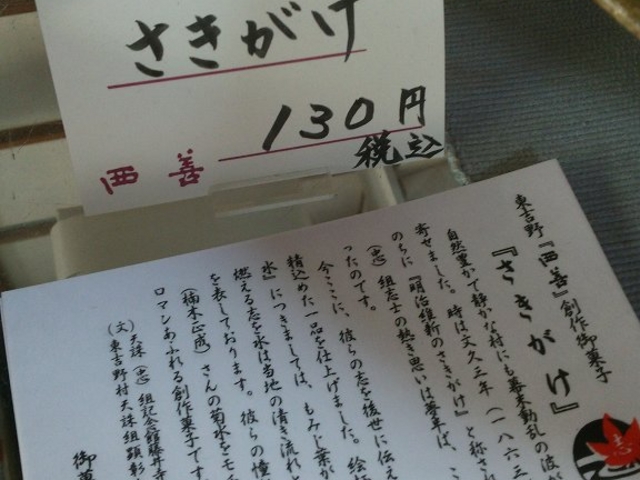 さきがけ
130円
税込
西善
東吉野『西善』創作御菓子
『さきがけ』
自然豊かで静かな村にも幕末動乱の波が
寄せました。時は文久三年（一八六三
のちに『明治維新のさきがけ』と称さ
（忠）組志士の熱き思いは
ったのです。
今ここに、彼らの志を後世に伝え
精込めた一品を仕上げました。
水』につきましては、もみじ葉が
燃える志を水は当地の清き流れと
を表しております。彼らの憧
（楠木正成）さんの菊水をモ
ロマンあふれる創作菓子です
（文）天誅（忠）組記念館藤井寺
東吉野村天誅組顕彰
御菓
志